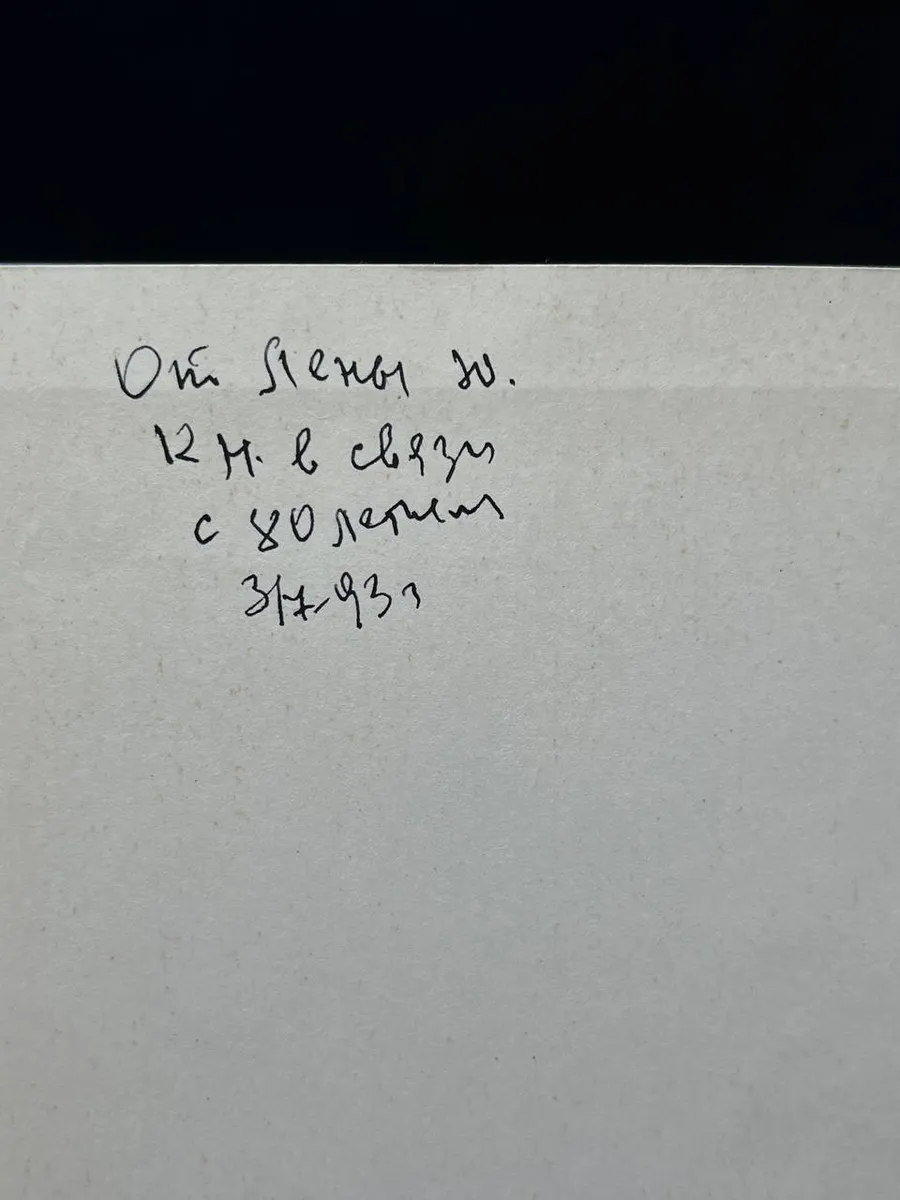 От Лены Ю.
К Н. в связи
с 80 летием
3/7-93 г